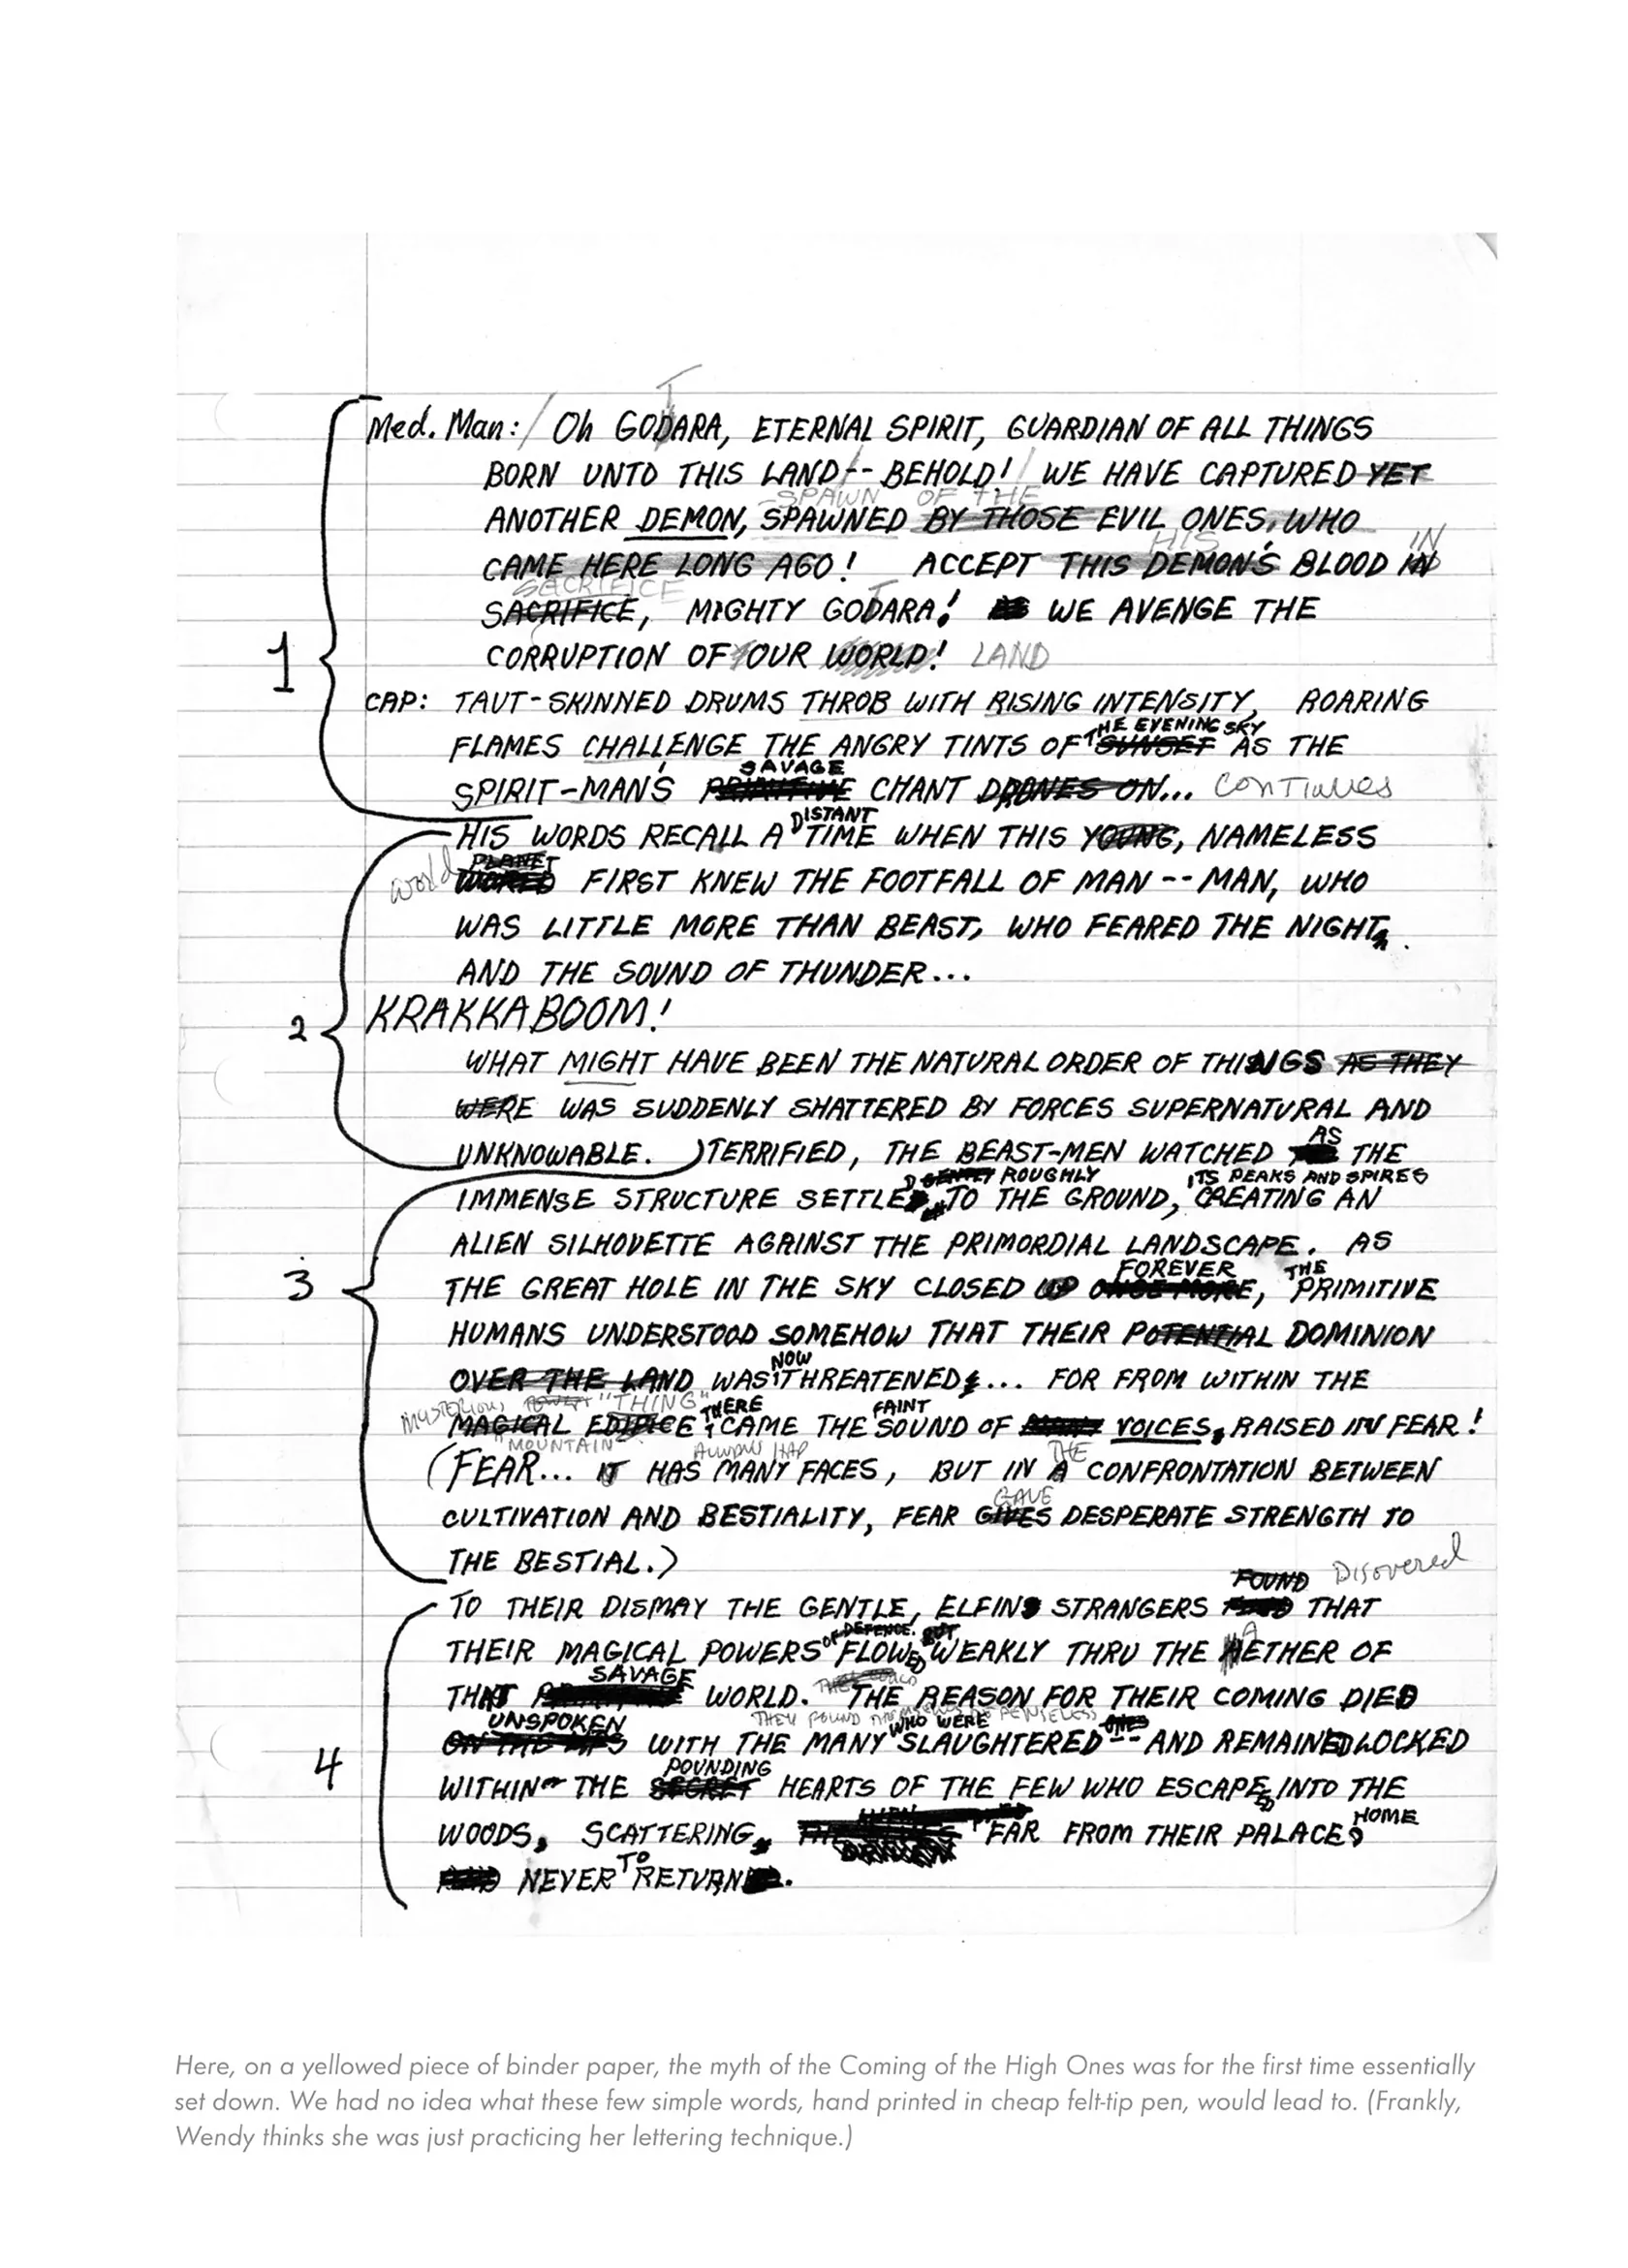 T
Med. Man: / Oh GODARA, ETERNAL SPIRIT, GUARDIAN OF ALL THINGS
BORN UNTO THIS LAND -- BEHOLD! / WE HAVE CAPTURED YET
- SPAWN OF THE
ANOTHER DEMON, SPAWNED BY THOSE EVIL ONES, WHO
HIS IN
CAME HERE LONG AGO! ACCEPT THIS DEMON'S BLOOD IN
SACRIFICE T
SACRIFICE, MIGHTY GODARA! WE AVENGE THE
1
CORRUPTION OF OUR WORLD! LAND
CAP: TAUT-SKINNED DRUMS THROB WITH RISING INTENSITY, ROARING
THE EVENING SKY
FLAMES CHALLENGE THE ANGRY TINTS OF SUNSET AS THE
SAVAGE
SPIRIT-MAN'S PRIMITIVE CHANT DRONES ON... CONTINUES
DISTANT
HIS WORDS RECALL A TIME WHEN THIS YOUNG, NAMELESS
PLANET
world WORLD FIRST KNEW THE FOOTFALL OF MAN -- MAN, WHO
WAS LITTLE MORE THAN BEAST, WHO FEARED THE NIGHT
AND THE SOUND OF THUNDER...
2
KRAKKABOOM!
WHAT MIGHT HAVE BEEN THE NATURAL ORDER OF THINGS AS THEY
WERE WAS SUDDENLY SHATTERED BY FORCES SUPERNATURAL AND
AS
UNKNOWABLE. ) TERRIFIED, THE BEAST-MEN WATCHED THE
ROUGHLY ITS PEAKS AND SPIRES
IMMENSE STRUCTURE SETTLED TO THE GROUND, CREATING AN
ALIEN SILHOUETTE AGAINST THE PRIMORDIAL LANDSCAPE. AS
3
FOREVER THE
THE GREAT HOLE IN THE SKY CLOSED UP ONCE MORE, PRIMITIVE
HUMANS UNDERSTOOD SOMEHOW THAT THEIR POTENTIAL DOMINION
NOW
OVER THE LAND WAS THREATENED... FOR FROM WITHIN THE
MYSTERIOUS "THING" THERE FAINT
MAGICAL EDIFICE CAME THE SOUND OF VOICES, RAISED IN FEAR!
"MOUNTAIN" ALWAYS HAD THE
(FEAR... IT HAS MANY FACES, BUT IN A CONFRONTATION BETWEEN
GAVE
CULTIVATION AND BESTIALITY, FEAR GIVES DESPERATE STRENGTH TO
THE BESTIAL.)
FOUND Disovered
TO THEIR DISMAY THE GENTLE, ELFIN STRANGERS THAT
OF DEFENCE. BUT A
THEIR MAGICAL POWERS FLOWED WEAKLY THRU THE AETHER OF
SAVAGE
THAT WORLD. THE REASON FOR THEIR COMING DIED
THEY FOUND THEMSELVES DEFENSELESS
UNSPOKEN WHO WERE ONES
ON THE LIPS WITH THE MANY SLAUGHTERED -- AND REMAINED LOCKED
4
POUNDING
WITHIN THE SECRET HEARTS OF THE FEW WHO ESCAPED INTO THE
HOME
WOODS, SCATTERING, FAR FROM THEIR PALACE,
TO
NEVER RETURN.
Here, on a yellowed piece of binder paper, the myth of the Coming of the High Ones was for the first time essentially
set down. We had no idea what these few simple words, hand printed in cheap felt-tip pen, would lead to. (Frankly,
Wendy thinks she was just practicing her lettering technique.)